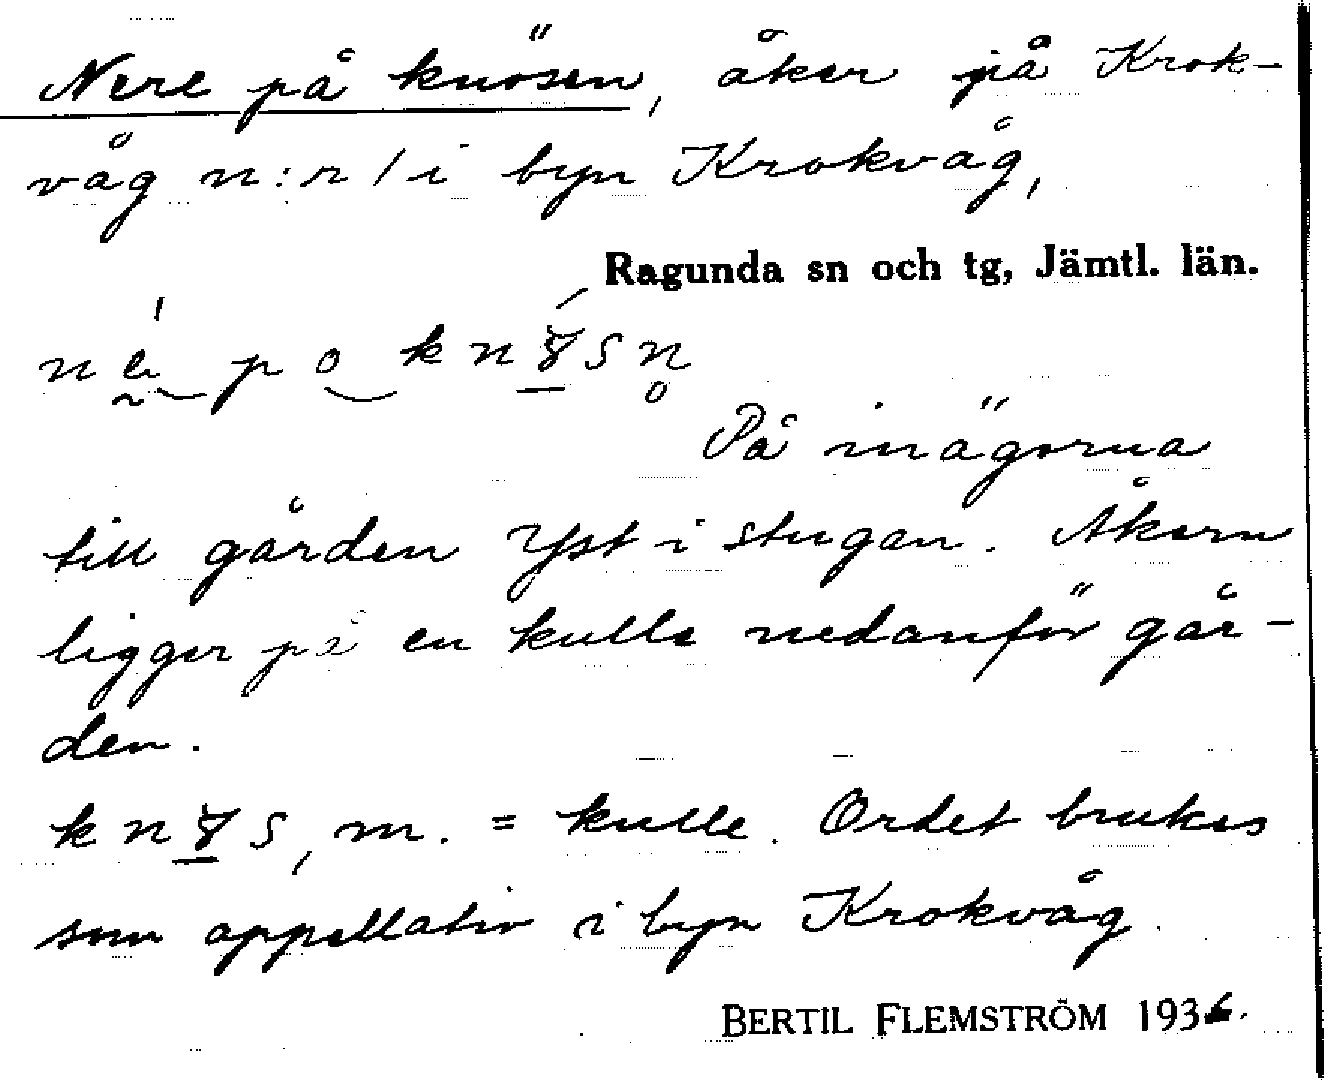 Nere på knösen, åker på Krok-
våg n:r 1 i byn Krokvåg,
Ragunda sn och tg, Jämtl. län.
På inägorna
till gården Yst i stugan. Åkern
ligger på en kulle nedanför går-
den.
m. = kulle. Ordet brukas
som appellativ i byn Krokvåg.
BERTIL FLEMSTRÖM 1936.